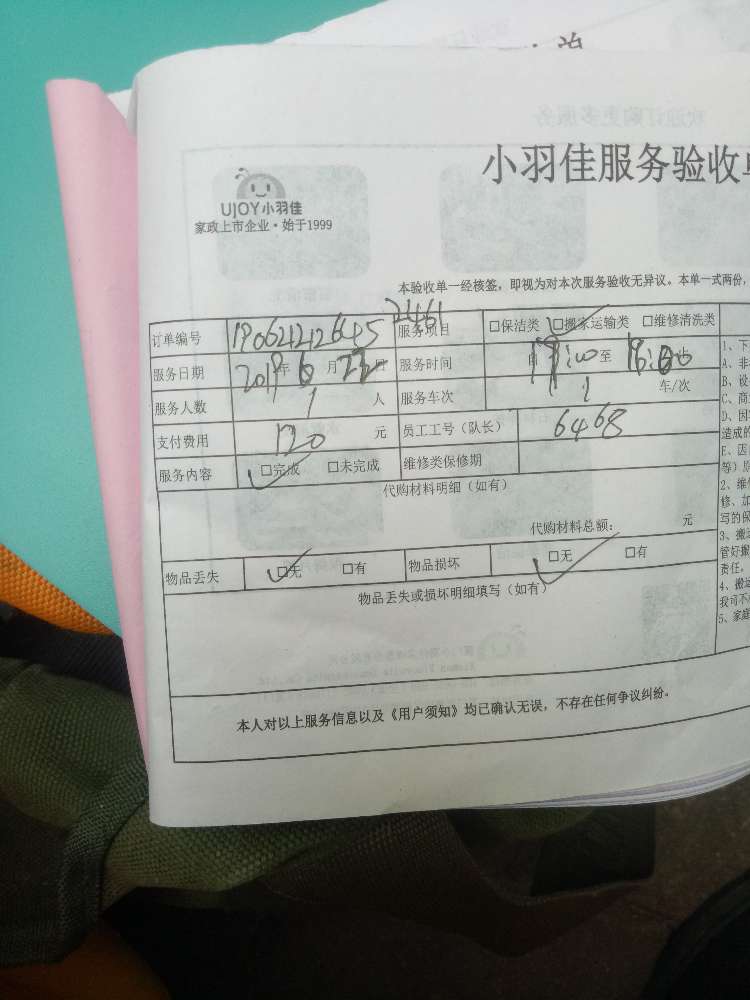 小羽佳服务验收单
UJOY小羽佳
家政上市企业·始于1999
本验收单一经核签，即视为对本次服务验收无异议。本单一式两份，
订单编号 服务项目 □保洁类 □搬家运输类 □维修清洗类
服务日期 2019年6月22日 服务时间 自 至 止
服务人数 1 人 服务车次 1 车/次
支付费用 120 元 员工工号（队长） 6468
服务内容 □完成 □未完成 维修类保修期
代购材料明细（如有）
代购材料总额： 元
物品丢失 □无 □有 物品损坏 □无 □有
物品丢失或损坏明细填写（如有）
本人对以上服务信息以及《用户须知》均已确认无误，不存在任何争议纠纷。
1、下
A、非
B、设
C、商
D、因
造成的
E、因
等）原
2、维
修、加
写的保
3、搬运
管好搬
责任。
4、搬运
我司不
5、家庭